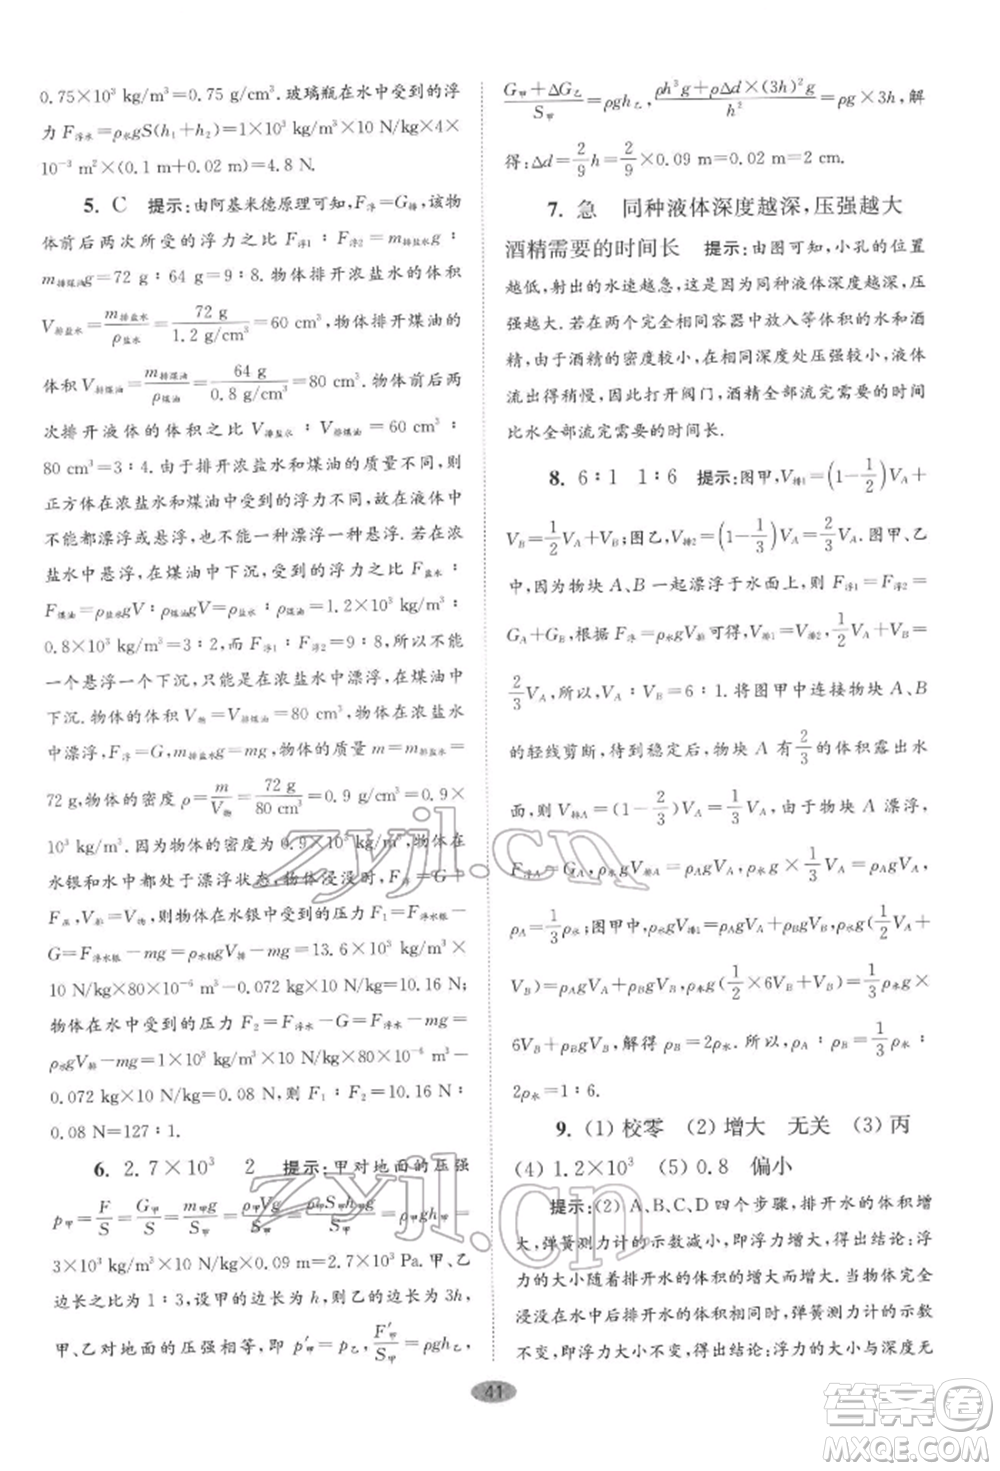 0.75×10³ kg/m³=0.75 g/cm³.玻璃瓶在水中受到的浮
力 F浮水=ρ水gS(h₁+h₂)=1×10³ kg/m³×10 N/kg×4×
10⁻³ m²×(0.1 m+0.02 m)=4.8 N.
5. C 提示:由阿基米德原理可知,F浮=G排,该物
体前后两次所受的浮力之比 F浮1∶F浮2=m排盐水g∶
m排煤油g=72 g∶64 g=9∶8.物体排开浓盐水的体积
V排盐水=m排盐水/ρ盐水=72 g/1.2 g/cm³=60 cm³,物体排开煤油的
体积 V排煤油=m排煤油/ρ煤油=64 g/0.8 g/cm³=80 cm³.则前后两
次排开液体的体积之比 V排盐水∶V排煤油=60 cm³∶
80 cm³=3∶4.由于排开浓盐水和煤油的质量不同,则
正方体在浓盐水和煤油中受到的浮力不同,故在液体中
不能都漂浮或悬浮,应该一个漂浮一个悬浮.若在浓
盐水中悬浮,在煤油中下沉,则两次浮力之比 F盐水∶
F煤油=ρ盐水gV∶ρ煤油gV=ρ盐水∶ρ煤油=1.2×10³∶
0.8×10³=3∶2,而 F浮1∶F浮2=9∶8,所以不能
一个悬浮一个下沉.则在浓盐水中漂浮,在煤油中
中下沉.物体的体积 V物=V排煤油=80 cm³,在浓盐水
中漂浮,F浮=G,m排盐水g=mg,物体的质量 m=m排盐水=
72 g,物体的密度 ρ=m/V物=72 g/80 cm³=0.9 g/cm³=0.9×
10³ kg/m³.因为物体的密度为 0.9×10³ kg/m³,它在
水银和水中都处于漂浮状态,物体浸没时,F浮=G+
F压,V排=V物,物体在水银中受到的压力 F₁=F浮水银-
G=F浮水银-mg=ρ水银gV排-mg=13.6×10³ kg/m³×
10 N/kg×80×10⁻⁶ m³-0.072 kg×10 N/kg=10.16 N;
物体在水中受到的压力 F₂=F浮水-G=F浮水-mg=
ρ水gV排-mg=1×10³ kg/m³×10 N/kg×80×10⁻⁶ m³-
0.072 kg×10 N/kg=0.08 N,则 F₁∶F₂=10.16 N∶
0.08 N=127∶1.
6. 2.7×10³ 2 提示:甲对地面的压强
p甲=F/S=G甲/S甲=m甲g/S甲=ρ甲Vg/S甲=ρ甲S甲h甲g/S甲=ρ甲gh甲=
3×10³ kg/m³×10 N/kg×0.09 m=2.7×10³ Pa.甲、乙
边长之比为 1∶3,设甲的边长为 h,则乙的边长为 3h.
甲、乙对地面的压强相等,即 p′甲=p乙,F′甲/S甲=ρgh乙,
G甲+ΔG乙/S甲=ρgh乙,ρh³g+ρΔd×(3h)²g/h²=ρg×3h,解
得:Δd=2/9h=2/9×0.09 m=0.02 m=2 cm.
7. 急 同种液体深度越深,压强越大
酒精需要的时间长 提示:由图可知,小孔的位置
越低,射出的水速越急,这是因为液体深度越深,压
强越大.若在两个完全相同容器中放入等体积的水和酒
精,由于酒精的密度较小,在相同深处压强较小,液体
流出的速度较小,因此打开阀门,酒精全部流完需要的时间
比水全部流完需要的时间长.
8. 6∶1 1∶6 提示:图甲,V排1=(1-1/2)VA+
VB=1/2VA+VB;图乙,V排2=(1-1/3)VA=2/3VA.图甲、乙
中,因为物块A、B一起漂浮于水面上,则 F浮1=F浮2=
GA+GB,根据 F浮=ρ水gV排可得,V排1=V排2,1/2VA+VB=
2/3VA,所以,VA∶VB=6∶1.将图甲中连接物块A、B
的轻线剪断,待到稳定后,物块 A 有2/3的体积露出水
面,则 V排A=(1-2/3)VA=1/3VA,由于物块 A 漂浮,
F浮A=GA,则 ρ水gV排A=ρAgVA,ρ水g×1/3VA=ρAgVA,
ρA=1/3ρ水;图甲中,ρ水gV排1=ρAgVA+ρBgVB,ρ水g(1/2VA+
VB)=ρAgVA+ρBgVB,ρ水g(1/2×6VB+VB)=1/3ρ水g×
6VB+ρBgVB,所以 ρB=2ρ水.所以,ρA∶ρB=1/3ρ水∶
2ρ水=1∶6.
9. (1) 校零 (2) 增大 无关 (3) 丙
(4) 1.2×10³ (5) 0.8 偏小
提示:(2) A、B、C、D 四个步骤,排开水的体积增
大,弹簧测力计的示数减小,即浮力增大,得出结论:浮
力的大小随着排开水的体积的增大而增大.物体完全
浸没在水中后排开水的体积相同,弹簧测力计的示数
不变,即浮力大小不变,得出结论:浮力大小与深度无
41
zyjl.cn
zyjl.cn
答案圈
MXQE.COM